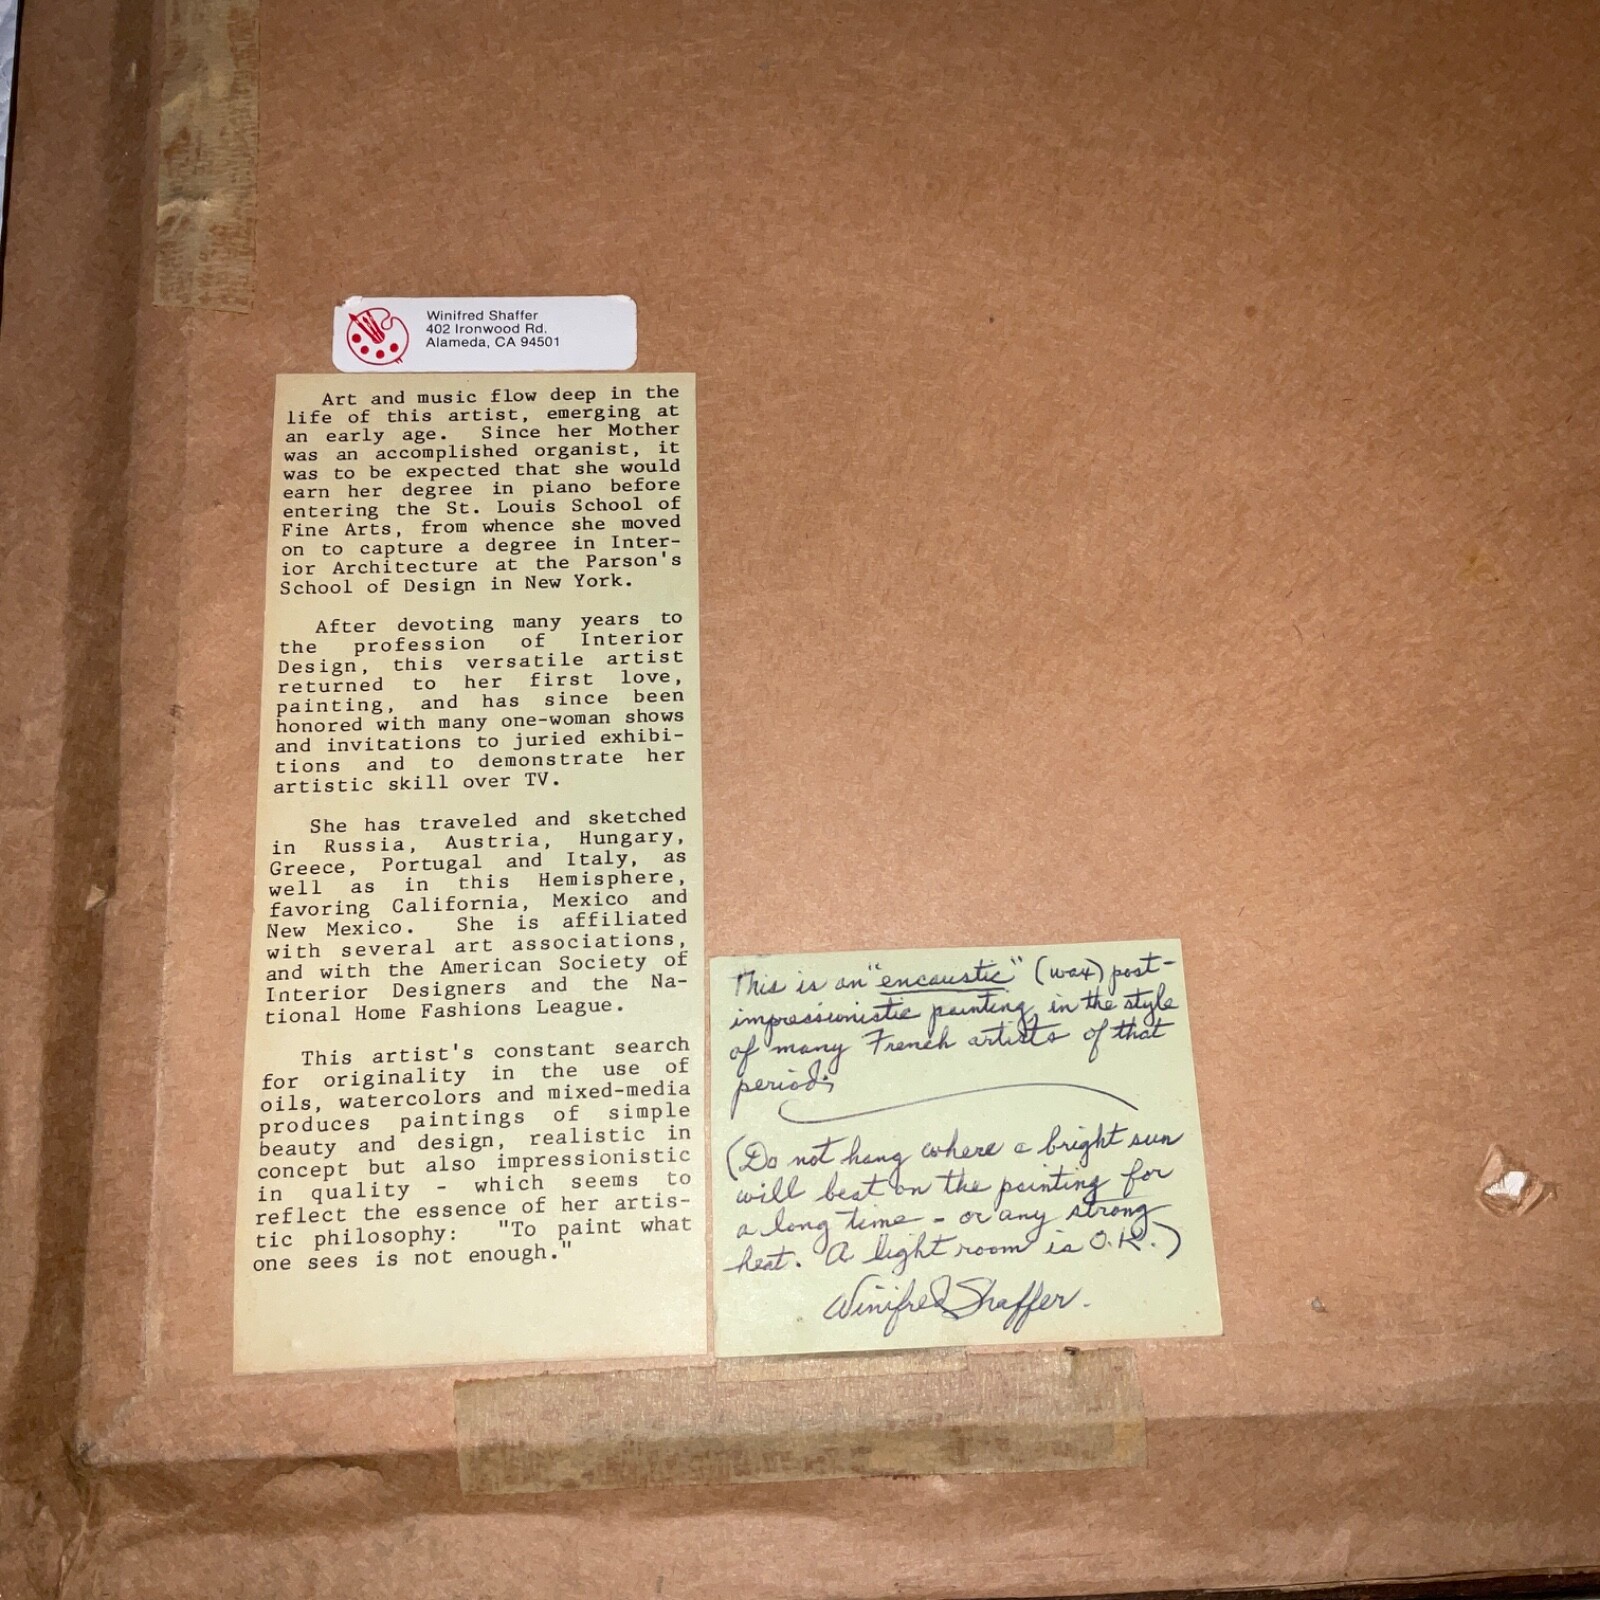 Winifred Shaffer
402 Ironwood Rd.
Alameda, CA 94501
Art and music flow deep in the
life of this artist, emerging at
an early age. Since her Mother
was an accomplished organist, it
was to be expected that she would
earn her degree in piano before
entering the St. Louis School of
Fine Arts, from whence she moved
on to capture a degree in Inter-
ior Architecture at the Parson's
School of Design in New York.
After devoting many years to
the profession of Interior
Design, this versatile artist
returned to her first love,
painting, and has since been
honored with many one-woman shows
and invitations to juried exhibi-
tions and to demonstrate her
artistic skill over TV.
She has traveled and sketched
in Russia, Austria, Hungary,
Greece, Portugal and Italy, as
well as in this Hemisphere,
favoring California, Mexico and
New Mexico. She is affiliated
with several art associations,
and with the American Society of
Interior Designers and the Na-
tional Home Fashions League.
This artist's constant search
for originality in the use of
oils, watercolors and mixed-media
produces paintings of simple
beauty and design, realistic in
concept but also impressionistic
in quality - which seems to
reflect the essence of her artis-
tic philosophy: "To paint what
one sees is not enough."
This is an "encaustic" (wax) post-
impressionistic painting, in the style
of many French artists of that
period;
(Do not hang where a bright sun
will beat on the painting for
a long time - or any strong
heat. A light room is O.K.)
Winifred Shaffer.